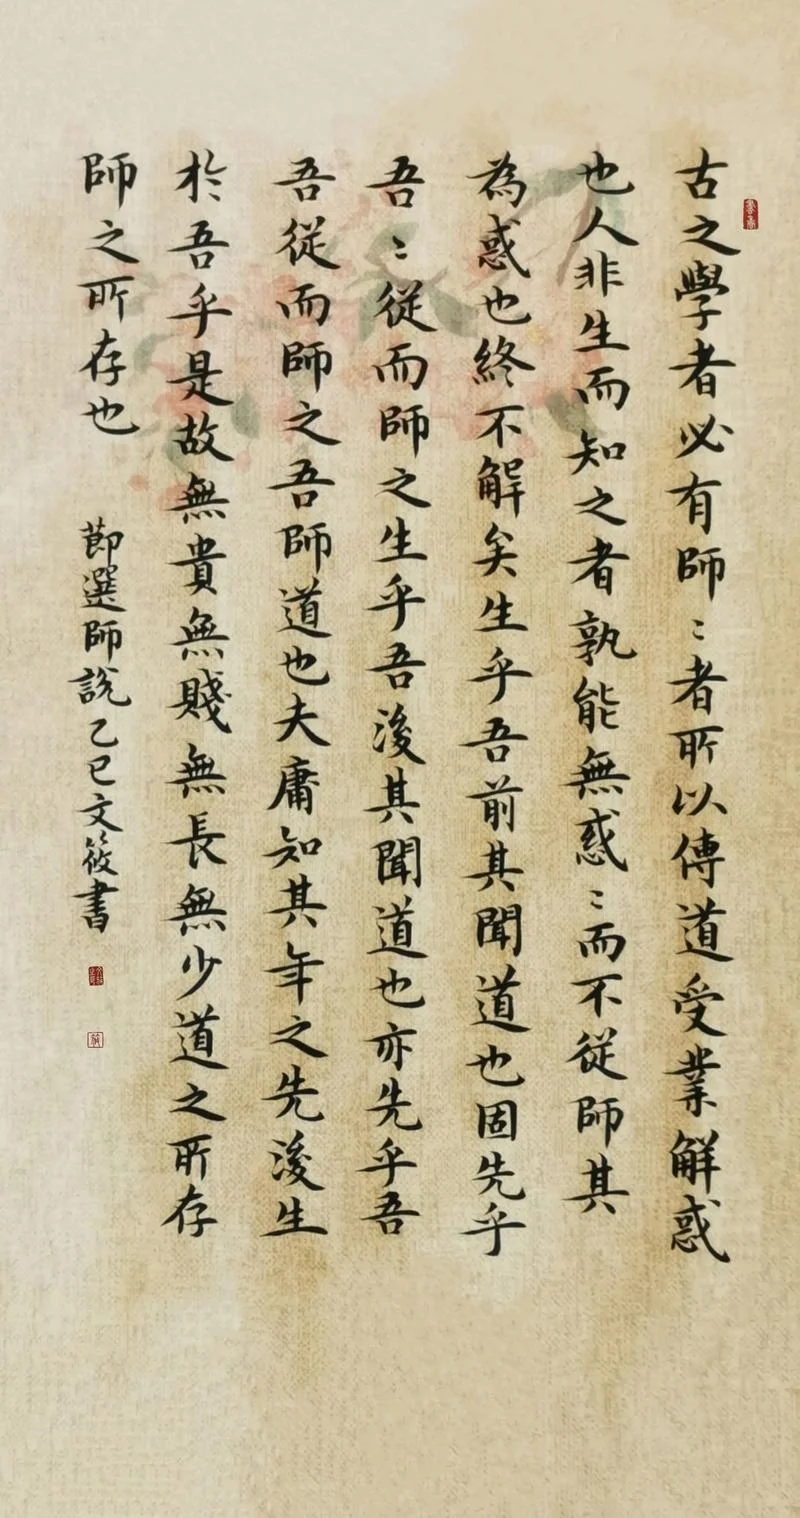 古之學者必有師〻者所以傳道受業解惑
也人非生而知之者孰能無惑〻而不從師其
為惑也終不解矣生乎吾前其聞道也固先乎
吾〻從而師之生乎吾後其聞道也亦先乎吾
吾從而師之吾師道也夫庸知其年之先後生
於吾乎是故無貴無賤無長無少道之所存
師之所存也
節選師說乙巳文筱書